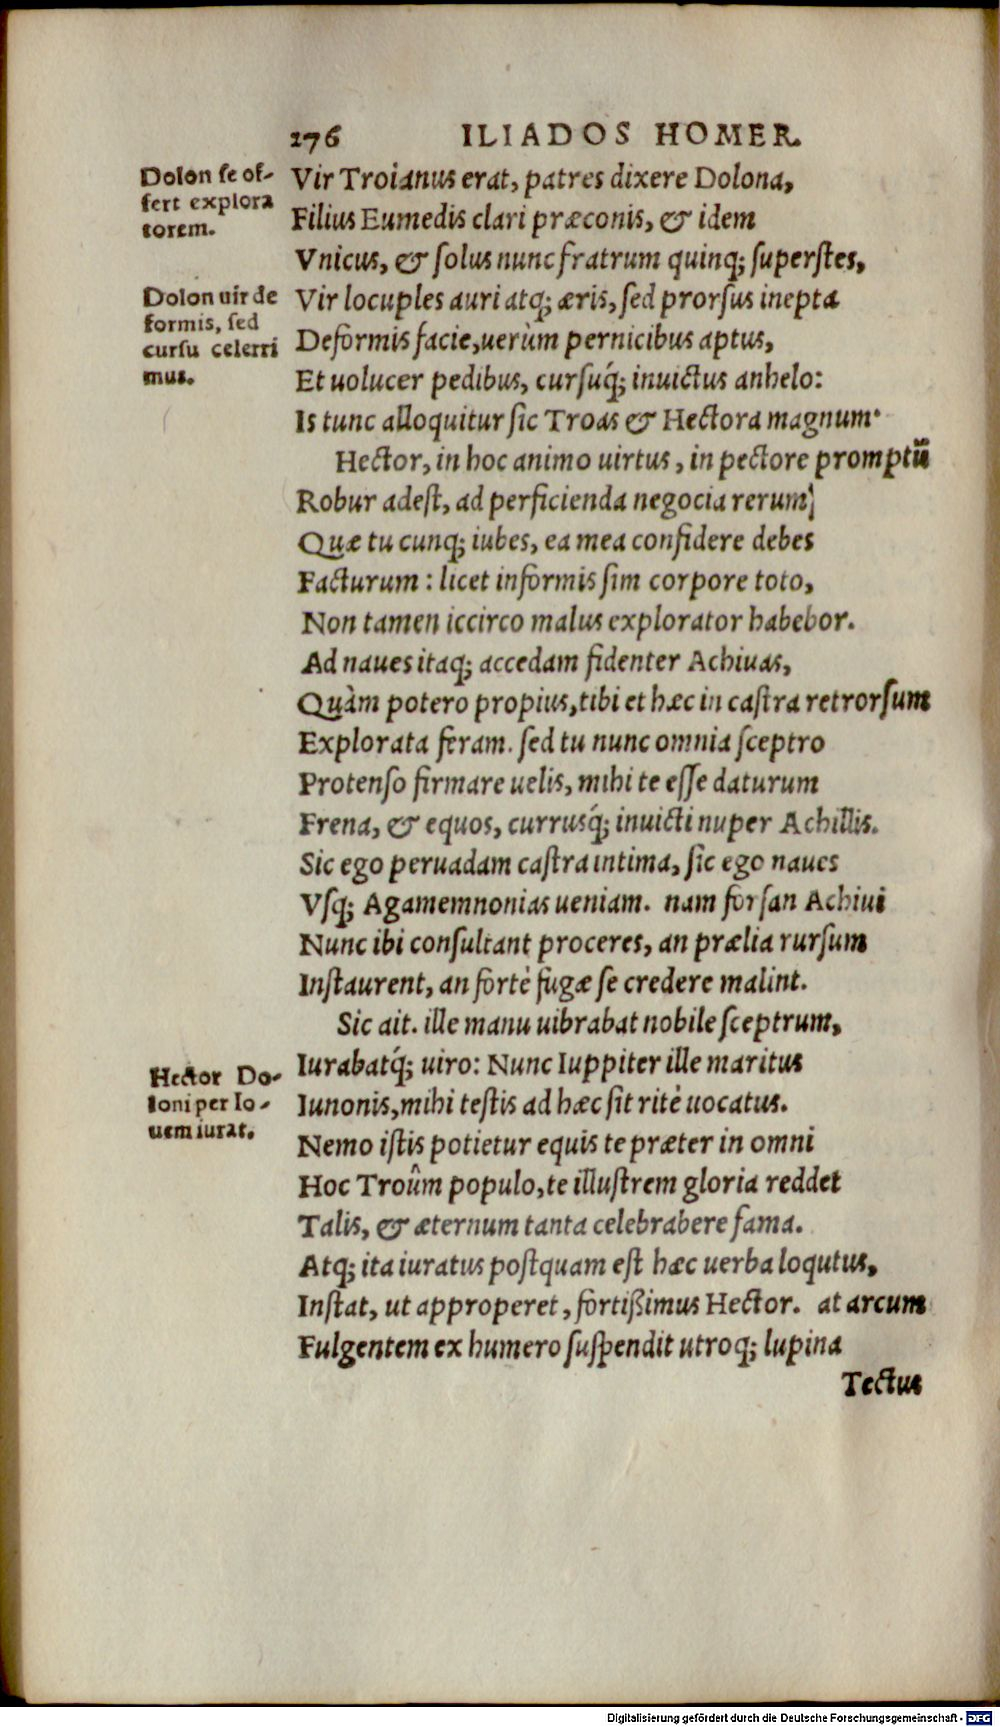 276 ILIADOS HOMER.
Dolon se of-
fert explora
torem.
Vir Troianus erat, patres dixere Dolona,
Filius Eumedis clari præconis, & idem
Vnicus, & solus nunc fratrum quinq; superstes,
Dolon uir de
formis, sed
cursu celerri
mus.
Vir locuples auri atq; æris, sed prorsus inepta
Deformis facie, uerùm pernicibus aptus,
Et uolucer pedibus, cursuq́; inuictus anhelo:
Is tunc alloquitur sic Troas & Hectora magnum.
Hector, in hoc animo uirtus, in pectore promptū
Robur adest, ad perficienda negocia rerum,
Quæ tu cunq; iubes, ea mea confidere debes
Facturum: licet informis sim corpore toto,
Non tamen iccirco malus explorator habebor.
Ad naues itaq; accedam fidenter Achiuas,
Quàm potero propius, tibi et hæc in castra retrorsum
Explorata feram. sed tu nunc omnia sceptro
Protenso firmare uelis, mihi te esse daturum
Frena, & equos, currusq́; inuicti nuper Achillis.
Sic ego peruadam castra intima, sic ego naues
Vsq; Agamemnonias ueniam. nam forsan Achiui
Nunc ibi consultant proceres, an prælia rursum
Instaurent, an fortè fugæ se credere malint.
Sic ait. ille manu uibrabat nobile sceptrum,
Hector Do-
loni per Io-
uem iurat.
Iurabatq́; uiro: Nunc Iuppiter ille maritus
Iunonis, mihi testis ad hæc sit ritè uocatus.
Nemo istis potietur equis te præter in omni
Hoc Troûm populo, te illustrem gloria reddet
Talis, & æternum tanta celebrabere fama.
Atq; ita iuratus postquam est hæc uerba loqutus,
Instat, ut approperet, fortißimus Hector. at arcum
Fulgentem ex humero suspendit utroq; lupina
Tectus
Digitalisierung gefördert durch die Deutsche Forschungsgemeinschaft - DFG